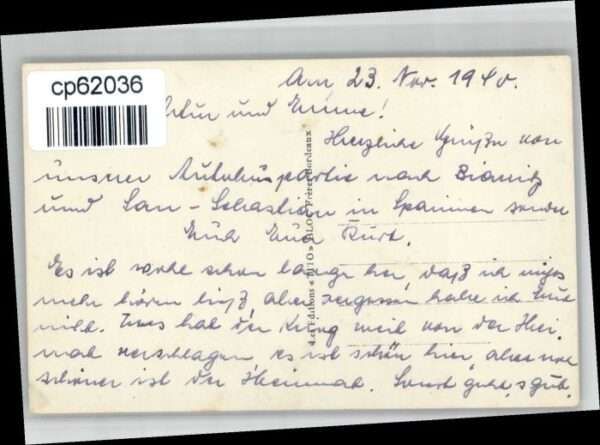 cp62036
Am 23. Nov. 1940.
und Emma!
Herzliche Grüße von
unsrer Autobuspartie nach Biarritz
und San-Sebastian in Spanien sendet
Euch Euer Kurt.
Es ist wohl schon lange her, daß ich nichts
mehr hören ließ aber vergessen habe ich Euch
nicht. Uns hat der Krieg weit von der Hei-
mat verschlagen es ist schön hier, aber noch
schöner ist die Heimat. Sonst geht's gut.
BLOC Frères Bordeaux